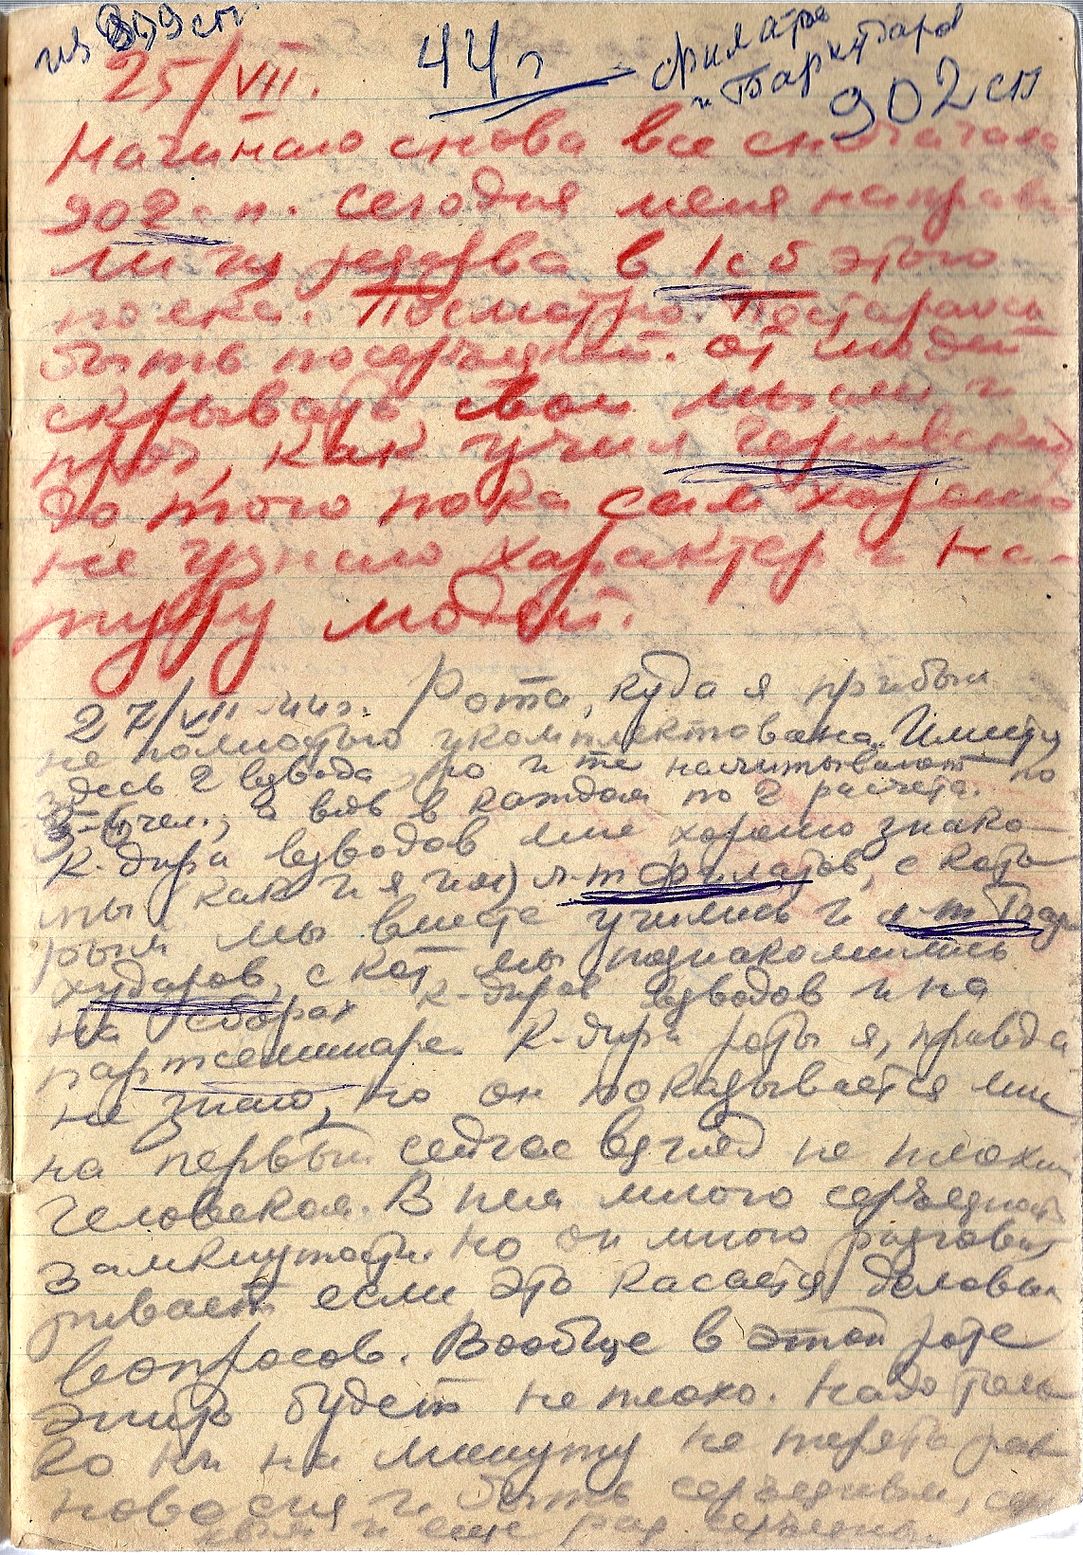 из 899 сп.
44 г
Филатов
и Бархударов
902 СП
25/VII.
Начинаю снова все сначала
902 сп. Сегодня меня направи
ли из резерва в 1 сб этого
полка. Посмотрю. Постараюсь
быть посерьезней. От людей
скрывать свои мысли и
проч, как учил Чернявский,
до того пока сам хорошо
не узнаю характер и на-
туру людей.
27/VII 44г. Рота, куда я прибыл
не полностью укомплектована. Имеется
здесь 2 взвода, но и те насчитывают по
чел., а в каждом по 2 расчета.
К-дира взводов мне хорошо знако-
мы (как и я им) л-т Филатов, с кото
рым мы вместе учились и л-т Бар
хударов, с кот. мы познакомились
на сборах к-диров взводов и на
партсеминаре. К-дира роты я, правда
не знаю, но он показывается мне
на первый сейчас взгляд не плохим
человеком. В нем много серьезности
замкнутости. Но он много разговари
ривает если это касается деловых
вопросов. Вообще в этой роте
жить будет не плохо. Надо толь
ко ни на минуту не терять рав
новесия и быть серьезным, серь
и еще раз серьезным.